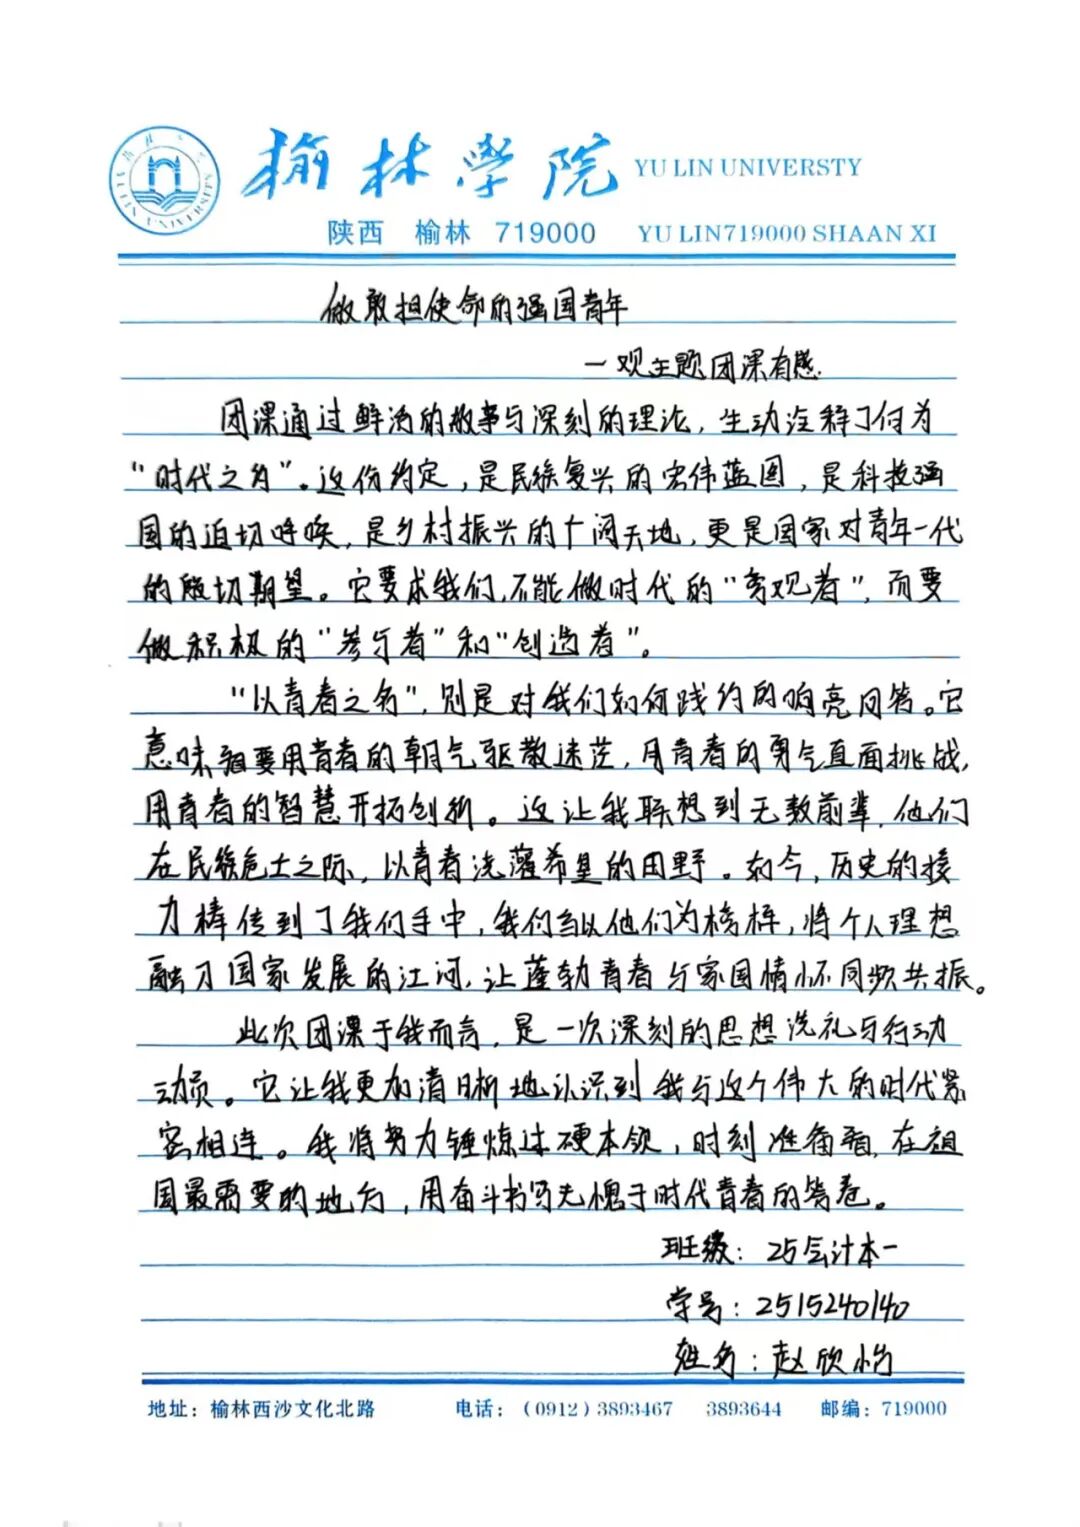 榆林学院 YU LIN UNIVERSTY
陕西 榆林 719000 YU LIN719000 SHAAN XI
做敢担使命的强国青年
—观主题团课有感.
团课通过鲜活的故事与深刻的理论，生动诠释了何为
“时代之约”。这份约定，是民族复兴的宏伟蓝图，是科技强
国的迫切呼唤，是乡村振兴的广阔天地，更是国家对青年一代
的殷切期望。它要求我们，不能做时代的“旁观者”，而要
做积极的“参与者”和“创造者”。
“以青春之名”，则是对我们如何践约的响亮回答。它
意味着要用青春的朝气驱散迷茫，用青春的勇气直面挑战，
用青春的智慧开拓创新。这让我联想到无数前辈，他们
在民族危亡之际，以青春浇灌希望的田野。如今，历史的接
力棒传到了我们手中，我们当以他们为榜样，将个人理想
融入国家发展的江河，让蓬勃青春与家国情怀同频共振。
此次团课于我而言，是一次深刻的思想洗礼与行动
动员。它让我更加清晰地认识到我与这个伟大的时代紧
密相连。我将努力锤炼过硬本领，时刻准备着，在祖
国最需要的地方，用奋斗书写无愧于时代青春的答卷。
班级：25会计本一
学号：2515240140
姓名：赵欣怡
地址：榆林西沙文化北路 电话：（0912）3893467 3893644 邮编：719000